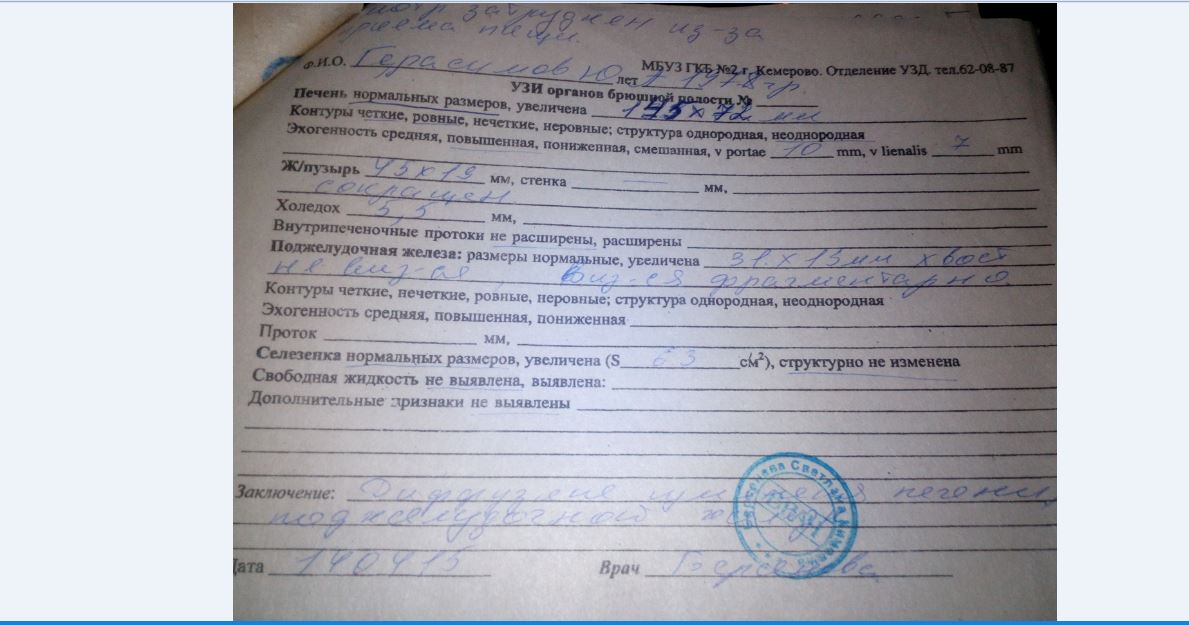 затруднен из-за
приема пищи.
МБУЗ ГКБ №2 г. Кемерово. Отделение УЗД. тел.62-08-87
Ф.И.О. Герасимов Ю лет 1978гр.
УЗИ органов брюшной полости №
Печень нормальных размеров, увеличена 145х72 мм
Контуры четкие, ровные, нечеткие, неровные; структура однородная, неоднородная
Эхогенность средняя, повышенная, пониженная, смешанная, v portae 10 mm, v lienalis 7 mm
Ж/пузырь 45х19 мм, стенка — мм,
сокращен
Холедох 5,5 мм,
Внутрипеченочные протоки не расширены, расширены
Поджелудочная железа: размеры нормальные, увеличена 31х15мм хвост
не виз-ся, виз-ся фрагментарно.
Контуры четкие, нечеткие, ровные, неровные; структура однородная, неоднородная
Эхогенность средняя, повышенная, пониженная
Проток мм,
Селезенка нормальных размеров, увеличена (S 63 см²), структурно не изменена
Свободная жидкость не выявлена, выявлена:
Дополнительные признаки не выявлены
Заключение: Диффузные печени
поджелудочной
Дата 140415 Врач Берсенева
Берсенева Светлана